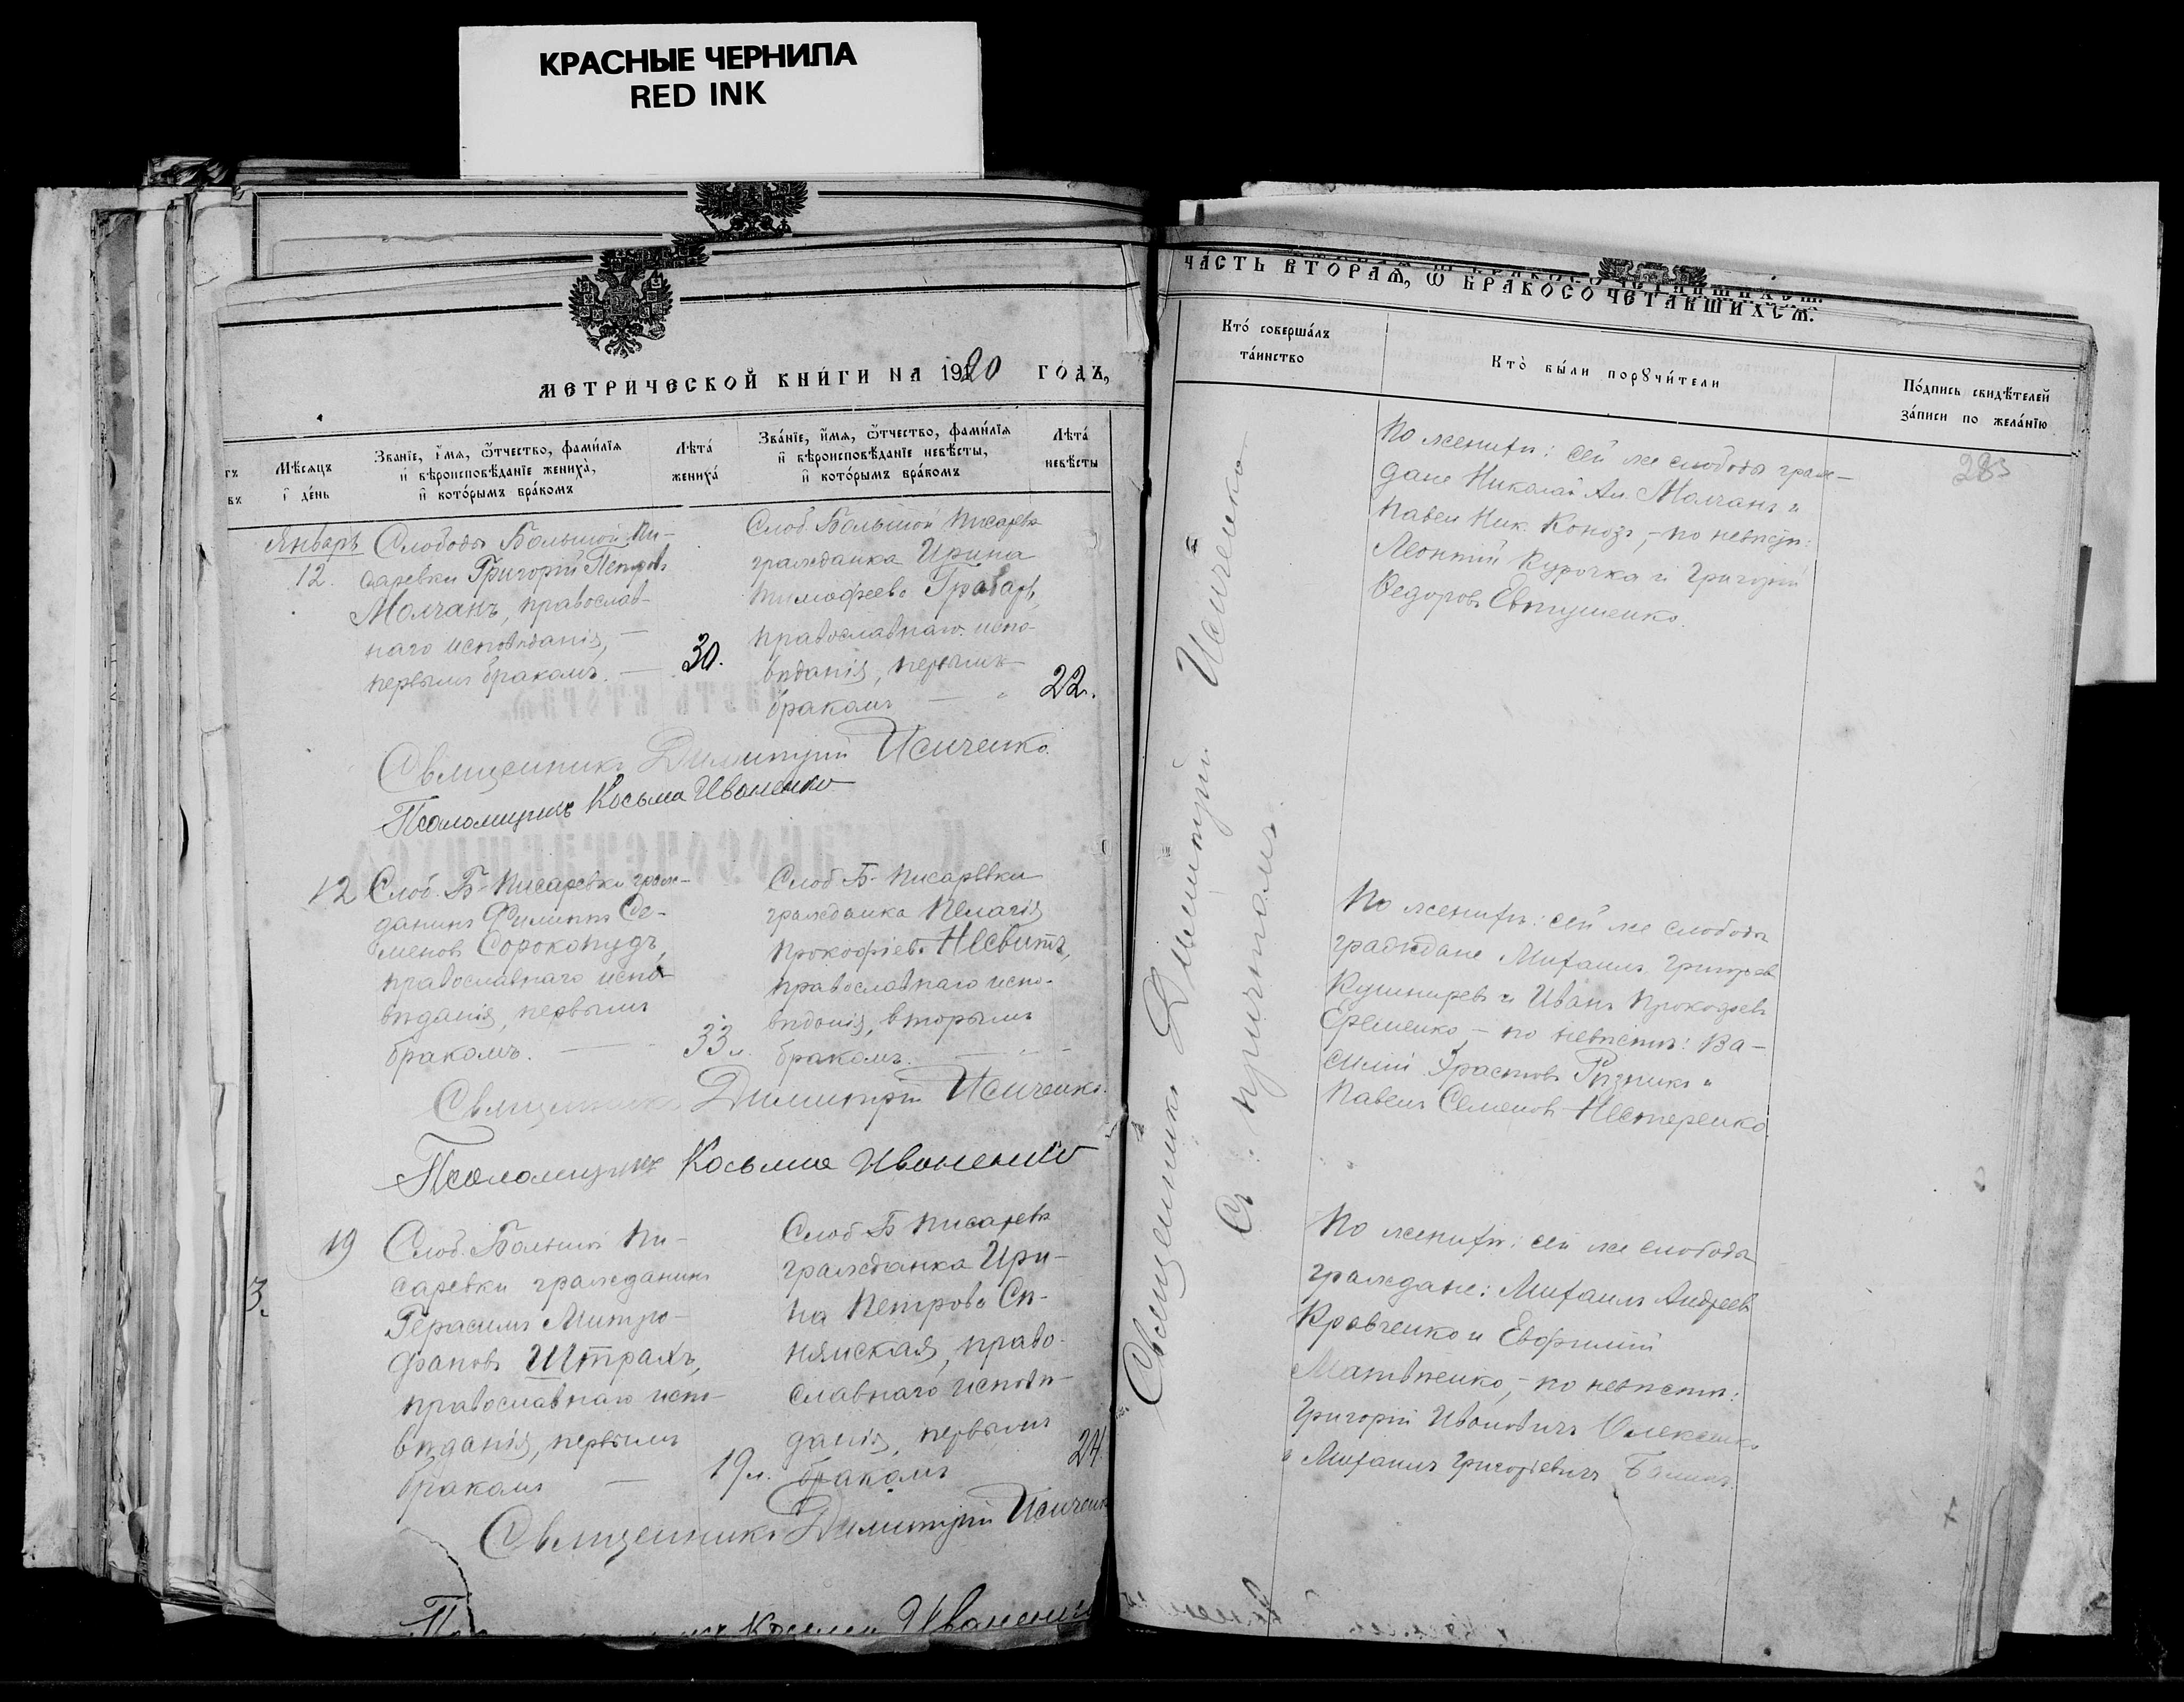 КРАСНЫЕ ЧЕРНИЛА
RED INK
МЕТРИЧЕСКОЙ КНИГИ НА 1920 ГОДЪ,
Мѣсяцъ
и день
Званіе, имя, отчество, фамилія
и вѣроисповѣданіе жениха,
и которымъ бракомъ
Лѣта
жениха
Званіе, имя, отчество, фамилія
и вѣроисповѣданіе невѣсты,
и которымъ бракомъ
Лѣта
невѣсты
Январь
12.
Слободы Большой Пи-
саревки Григорій Петровъ
Молчанъ, православ-
наго исповѣданія, —
первымъ бракомъ. —
30.
Слоб. Большой Писаревк
гражданка Ирина
Тимофеева Грабарь,
православнаго испо-
вѣданія, первымъ
бракомъ —
22.
Священникъ Димитрій Исиченко.
Псаломщикъ Косьма Иваненко
12
Слоб. Б-Писаревки граж-
данинъ Филиппъ Се-
меновъ Сорокопудъ,
православнаго испо-
вѣданія, первымъ
бракомъ. —
33 л.
Слоб Б- Писаревки
гражданка Пелагія
Прокофіева Несвитъ,
православнаго испо-
вѣданія, вторымъ
бракомъ. —
Священникъ Димитрій Исиченко.
Псаломщикъ Косьма Иваненко
3.
19
Слоб. Большой Пи-
саревки гражданинъ
Герасимъ Митро-
фановъ Штрахъ,
православнаго испо-
вѣданія, первымъ
бракомъ —
19 л.
Слоб Б Писаревк
гражданка Ири-
на Петрова Сѣ-
нянская, право-
славнаго исповѣ-
данія, первымъ
бракомъ
24
Священникъ Димитрій Исиченк
Косьма Иваненко
ЧАСТЬ ВТОРАЯ, Ѡ БРАКОСОЧЕТАВШИХСЯ.
Кто совершалъ
таинство
Кто были поручители
Подпись свидѣтелей
записи по желанію
283
Священникъ Димитрій Исиченко
Съ причтомъ.
По женихѣ: сей же слободы граж-
дане Николай Ал. Молчанъ и
Павелъ Ник. Конозъ, - по невѣстѣ:
Леонтій Курочка и Григорій
Федоровъ Евтушенко.
По женихѣ: сей же слободы
граждане Михаилъ Григорьев
Кушниревъ и Иванъ Прокофьев
Еременко, - по невѣстѣ: Ва-
силій Эрастовъ Рѣзникъ и
Павелъ Семеновъ Нестеренко.
По женихѣ: сей же слободы
граждане: Михаилъ Андреев
Кравченко и Евфимій
Матвѣенко, - по невѣстѣ:
Григорій Ивановичъ Олексенко
и Михаилъ Григорьевичъ